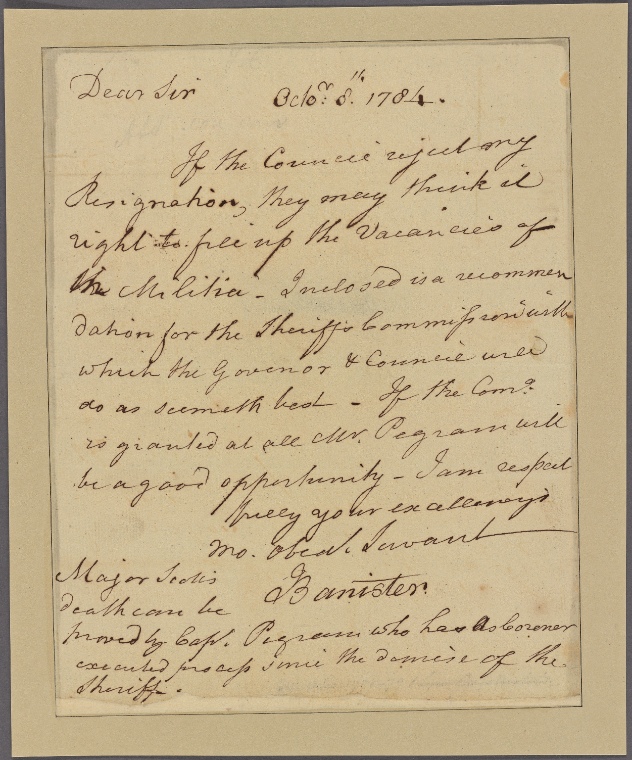 Dear Sir Octo.r 8.th 1784.
If the Council reject my
Resignation, they may think it
right to fill up the Vacancies of
the Militia - Inclosed is a recommen
dation for the Sheriff's Commission with
which the Govenor & Council will
do as seemeth best - If the Com.n
is granted at all Mr. Pegram will
be a good opportunity - I am respect
fully your excellency's
mo. obed.t Servant
Banister.
Major Scott's
death can be
proved by Capt. Pegram who has as Coroner
executed process since the demise of the
Sheriff.